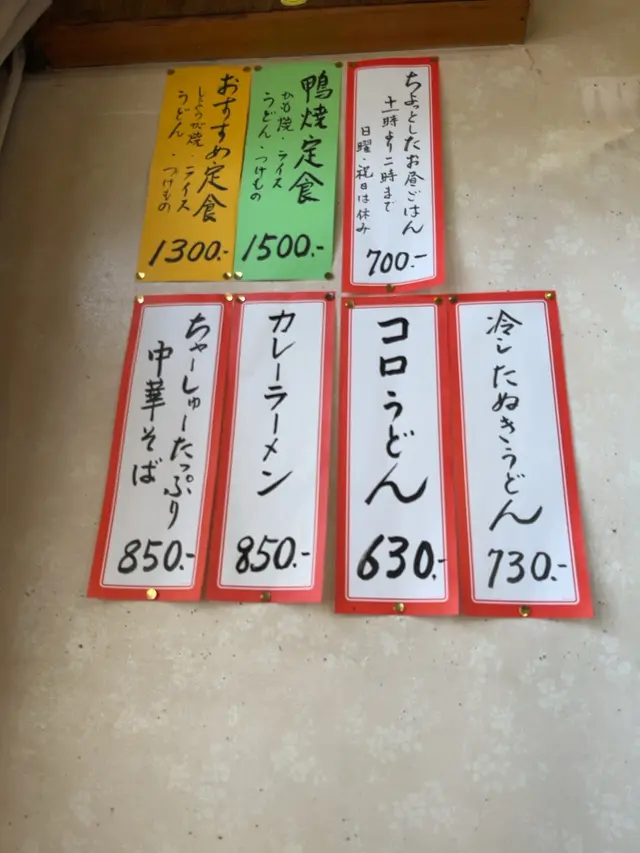 ちょっとしたお昼ごはん
十一時より二時まで
日曜・祝日は休み
700.-
鴨焼定食
かも焼・ライス
うどん・つけもの
1500.-
おすすめ定食
しょうが焼・ライス
うどん・つけもの
1300.-
冷したぬきうどん
730.-
コロうどん
630.-
カレーラーメン
850.-
ちゃーしゅーたっぷり
中華そば
850.-